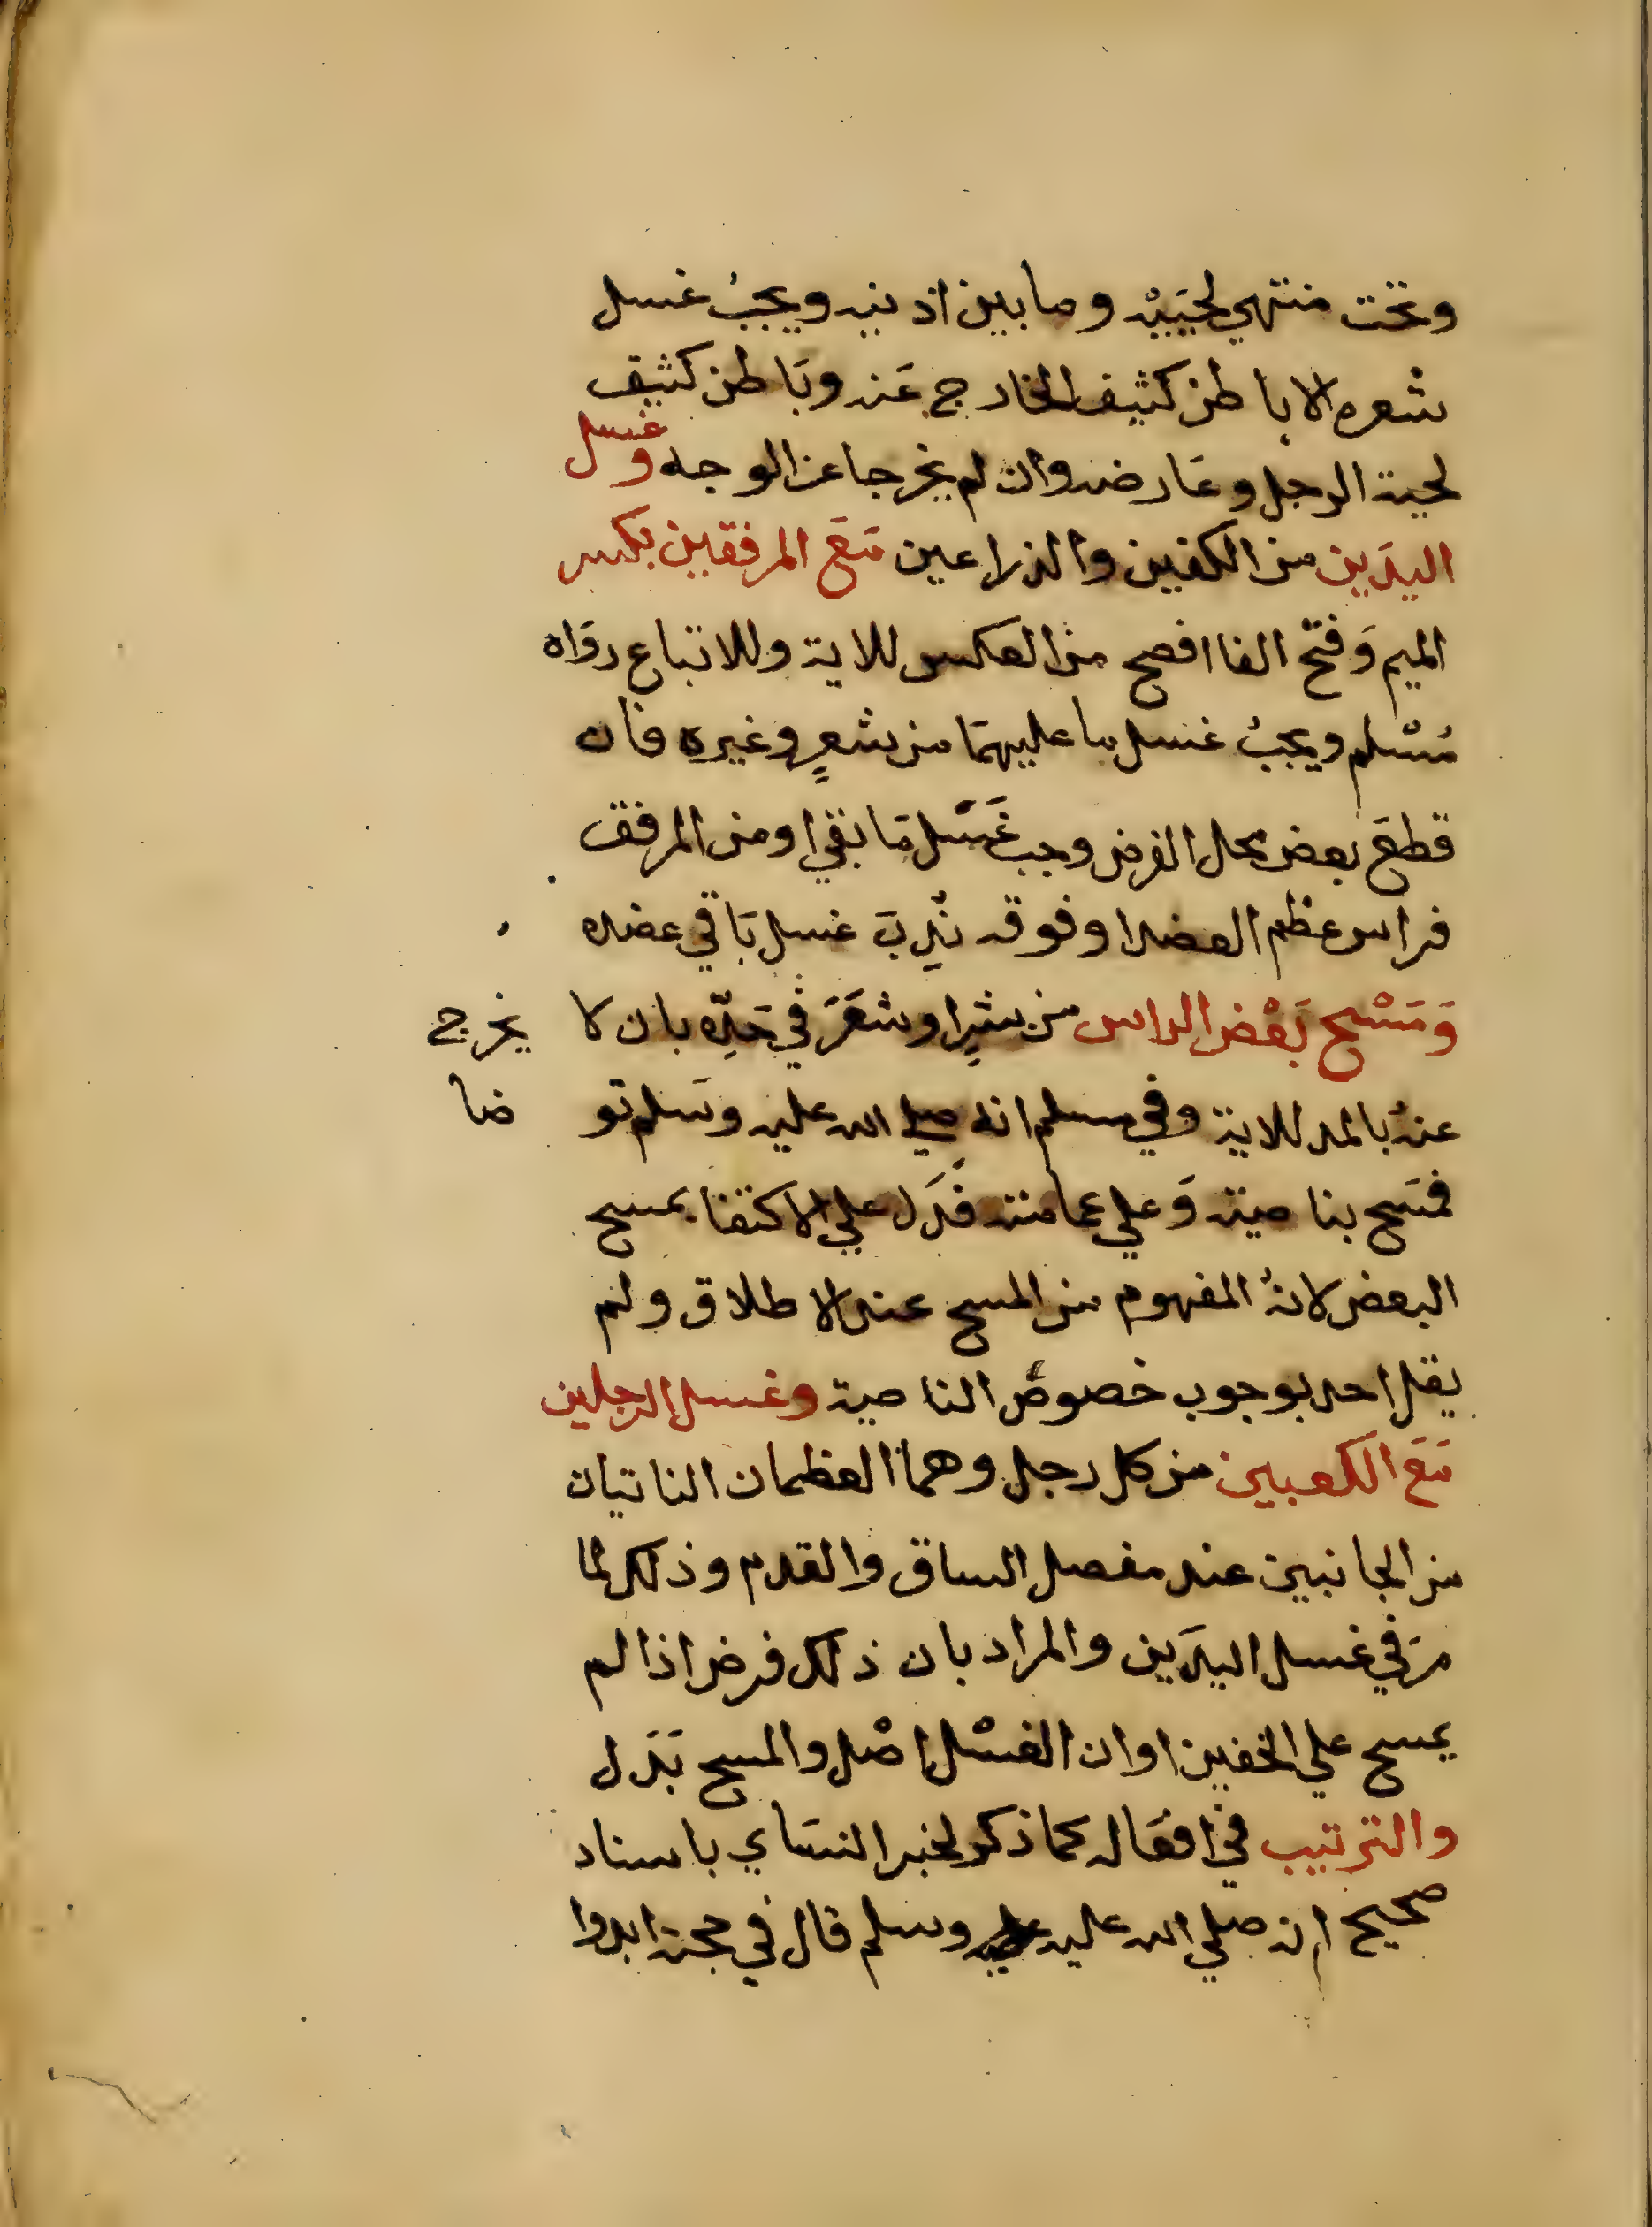 وتحت منتهي لحيَيْه وما بين اذنيه ويجبُ غسل
شعره الا باطن كثيف الخارج عَنه وبَاطن كثيف
لحية الرجل وعَارضه وان لم يخرجا عن الوجه وغسل
اليدَين من الكفين والذراعين مَعَ المرفقين بكسر
الميم وَفتح الفا افصح من العكس للاية وللاتباع روَاه
مُسْلم ويجبُ غسل ما عليهمَا من شعرٍ وغيره فان
قطعَ بعض محل الفرض وجب غَسْل مَا بقي او من المرفق
فراس عظم العضد او فوقه نُدِبَ غسل بَاقي عضده
وَمَسْح بَعْض الراس من بشرٍ او شعَرَ في حَدِّه بان لا يخرج
عنهُ بالمد للاية وفي مسلم انه صلي الله عليه وسَلم توضا
فمَسَح بناصيته وَعلي عمامته فَدَل علي الاكتفا بمسح
البعض لانهُ المفهوم من المسح عند الاطلاق ولم
يقل احد بوجوب خصوصُ الناصية وغسل الرجلين
مَعَ الكَعبين من كل رجل وهما العظمان الناتيان
من الجانبين عند مفصل الساق والقدم وذلك لما
مرَ في غسل اليدَين والمراد بان ذلك فرض اذا لم
يمسح علي الخفين او ان الغسْل اصْل والمسح بَدَل
والترتيب في افعَاله كما ذكر لخبر النسَاي باسناد
صحيح انه صلي الله عليه وسلم قال في حجته ابدوا